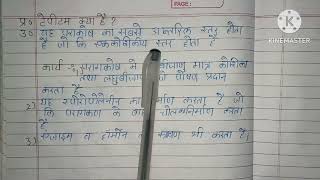 PAGE:
प्र० टेपीटम क्या है ?
उ० यह परागकोष का सबसे आन्तरिक स्तर होता
है जो कि एककोशिकीय स्तर होता है
कार्य - 1) परागकोष में बीजाणु मात्र कोशिका
तथा लघुबीजाणु को पोषण प्रदान
करता है
2) यह स्पोरोपोलेनीन का निर्माण करता है जो
कि परागकण के बाह्य चोल का निर्माण करता
है
3) एन्जाइम व हॉर्मोन का स्त्रावण भी करता है।
KINEMASTER